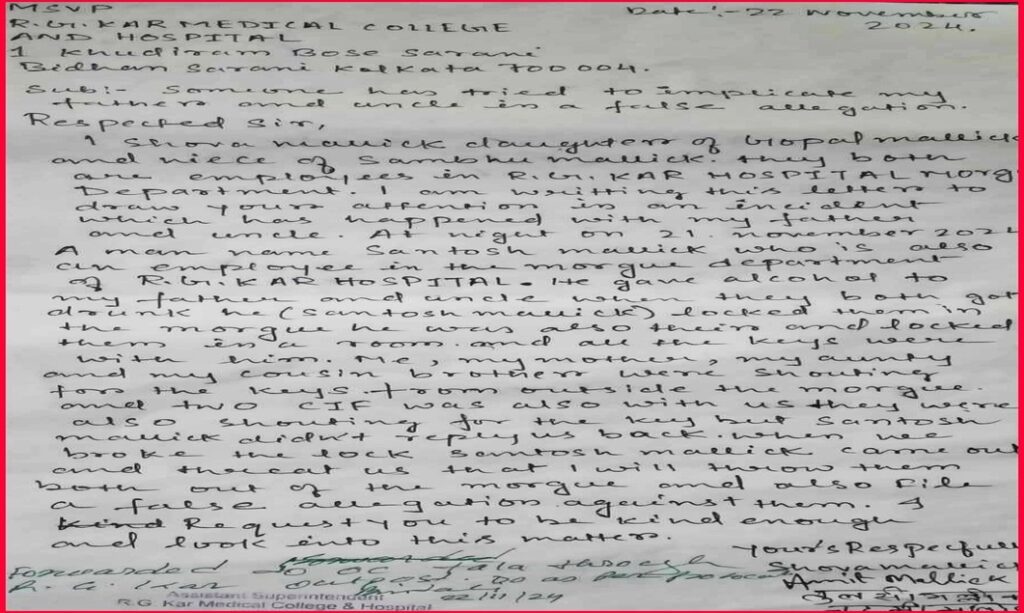 MSVP
Date:-22 November
R.G.KAR MEDICAL COLLEGE
2024.
AND HOSPITAL
1 Khudiram Bose Sarani
Bidhan Sarani Kolkata 700004.
Sub:- Someone has tried to implicate my
father and uncle in a false allegation.
Respected Sir,
I Shova mallick daughter of Gopal mallick
and niece of Sambhu mallick. they both
are employees in R.G.KAR HOSPITAL Morg
Department. I am writting this letter to
draw your attention in an incident
which has happened with my father
and uncle. At night on 21. november 202
A man name Santosh mallick who is also
an employee in the morgue department
of R.G.KAR HOSPITAL. He gave alcohol to
my father and uncle when they both got
drunk he (Santosh mallick) locked them in
the morgue he was also their and locked
them in a room. and all the keys were
with him. Me, my mother, my aunty
and my cousin brother were shouting
for the keys. from outside the morgue.
and two CIF was also with us they were
also shouting for the key but Santosh
mallick didn't reply us back. when we
broke the lock Santosh mallick came out
and threat us that I will throw them
both out of the morgue and also File
a false allegation against them. I
Kind Request you to be kind enough
and look into this matter.
Your's Respecfull
Forwarded to OC Tala through
Shova mallic
R. G. Kar outpost. Do as per protoco
Amit Mallick
22/11/24
Assistant Superintendent
R.G. Kar Medical College & Hospital